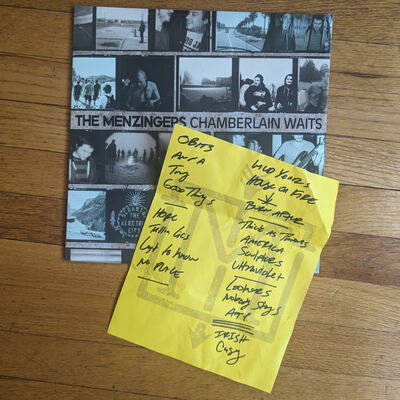 THE MENZINGERS CHAMBERLAIN WAITS
THE
ELECTRIC
CITY
OBITS
Anna
Good Things
HOPE
Tellin Lies
Last to know
NO PLACE
WILD YEARS
HOUSE ON FIRE
BURN AFTER
Thick as Thieves
AMERICA
Sculptors
Ultraviolet
Lookers
Nobody Stays
ATP
IRISH
Casey